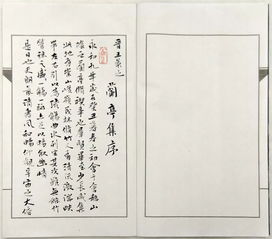 晉王羲之
蘭亭集序
永和九年歲在癸丑暮春之初會于會稽山
陰之蘭亭脩禊事也群賢畢至少長咸集
此地有崇山峻嶺茂林脩竹又有清流激湍映
帶左右引以為流觴曲水列坐其次雖無絲竹
管弦之盛一觴一詠亦足以暢敘幽情
是日也天朗氣清惠風和暢仰觀宇宙之大俯